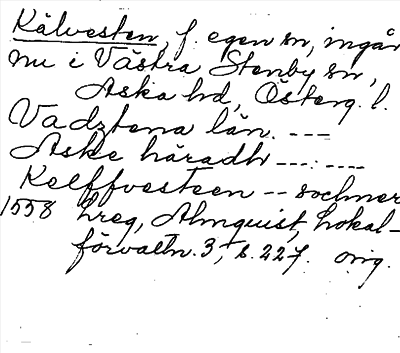 Kälvesten, f. egen sn, ingår
nu i Västra Stenby sn,
Aska hd, Österg. l.
Vadztena län. ---
Aske häradh ---:----
Kelffvesteen -- sochner
1558 Lreg, Almquist, Lokal-
förvaltn. 3, s. 227. orig.